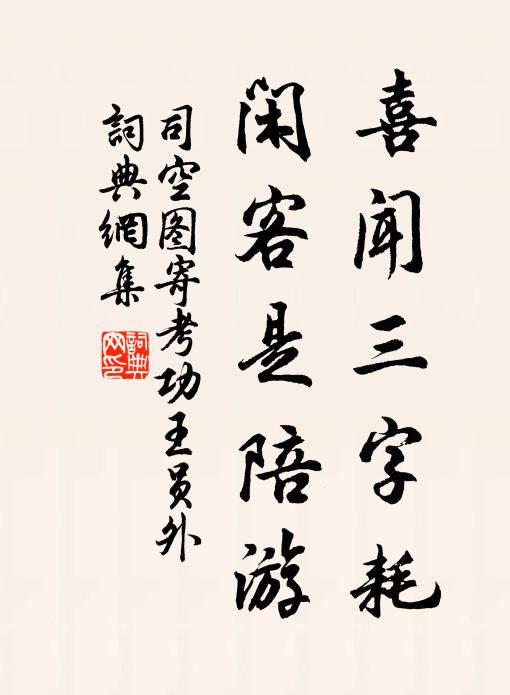 喜聞三字耗
閑客是陪游
司空图寄考功王員外
詞典網集
詞典网印